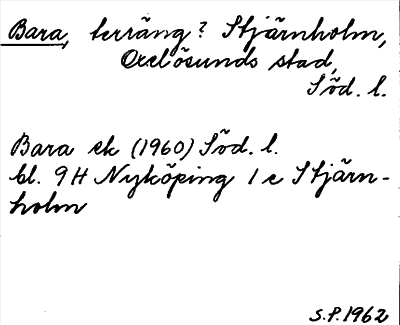 Bara, terräng? Stjärnholm,
Oxelösunds stad,
Söd. l.
Bara ek (1960) Söd. l.
bl. 9H Nyköping 1 c Stjärn-
holm
S.P. 1962